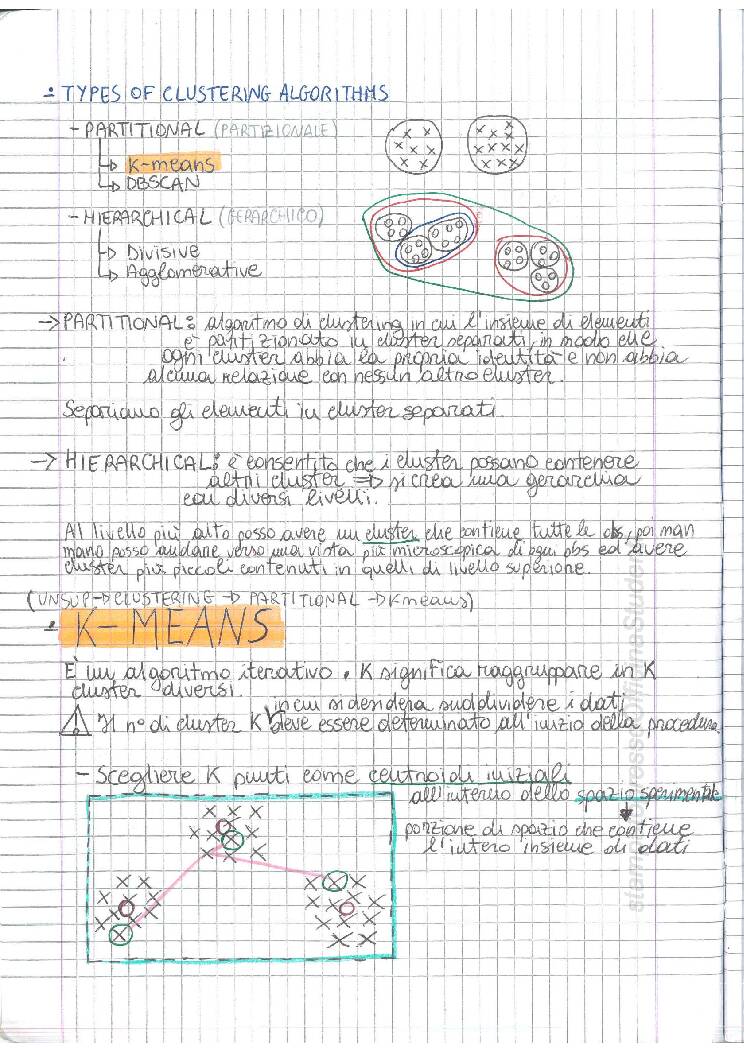 • TYPES OF CLUSTERING ALGORITHMS
- PARTITIONAL (PARTIZIONALE)
↳ K-means
↳ DBSCAN
- HIERARCHICAL (GERARCHICO)
↳ Divisive
↳ Agglomerative
→ PARTITIONAL: algoritmo di clustering in cui l'insieme di elementi
è partizionato in cluster separati, in modo che
ogni cluster abbia la propria identità e non abbia
alcuna relazione con nessun altro cluster.
Separiamo gli elementi in cluster separati
→ HIERARCHICAL: è consentito che i cluster possano contenere
altri cluster ⇒ si crea una gerarchia
con diversi livelli.
Al livello più alto posso avere un cluster che contiene tutte le obs, poi man
mano posso andare verso una vista più microscopica di ogni obs ed avere
cluster più piccoli contenuti in quelli di livello superiore.
(UNSUP → CLUSTERING → PARTITIONAL → Kmeans)
• K-MEANS
È un algoritmo iterativo. K significa raggruppare in K
cluster diversi.
in cui si desidera suddividere i dati
⚠ Il n° di cluster K deve essere determinato all'inizio della procedura.
- Scegliere K punti come centroidi iniziali
all'interno dello spazio sperimentale
porzione di spazio che contiene
l'intero insieme di dati